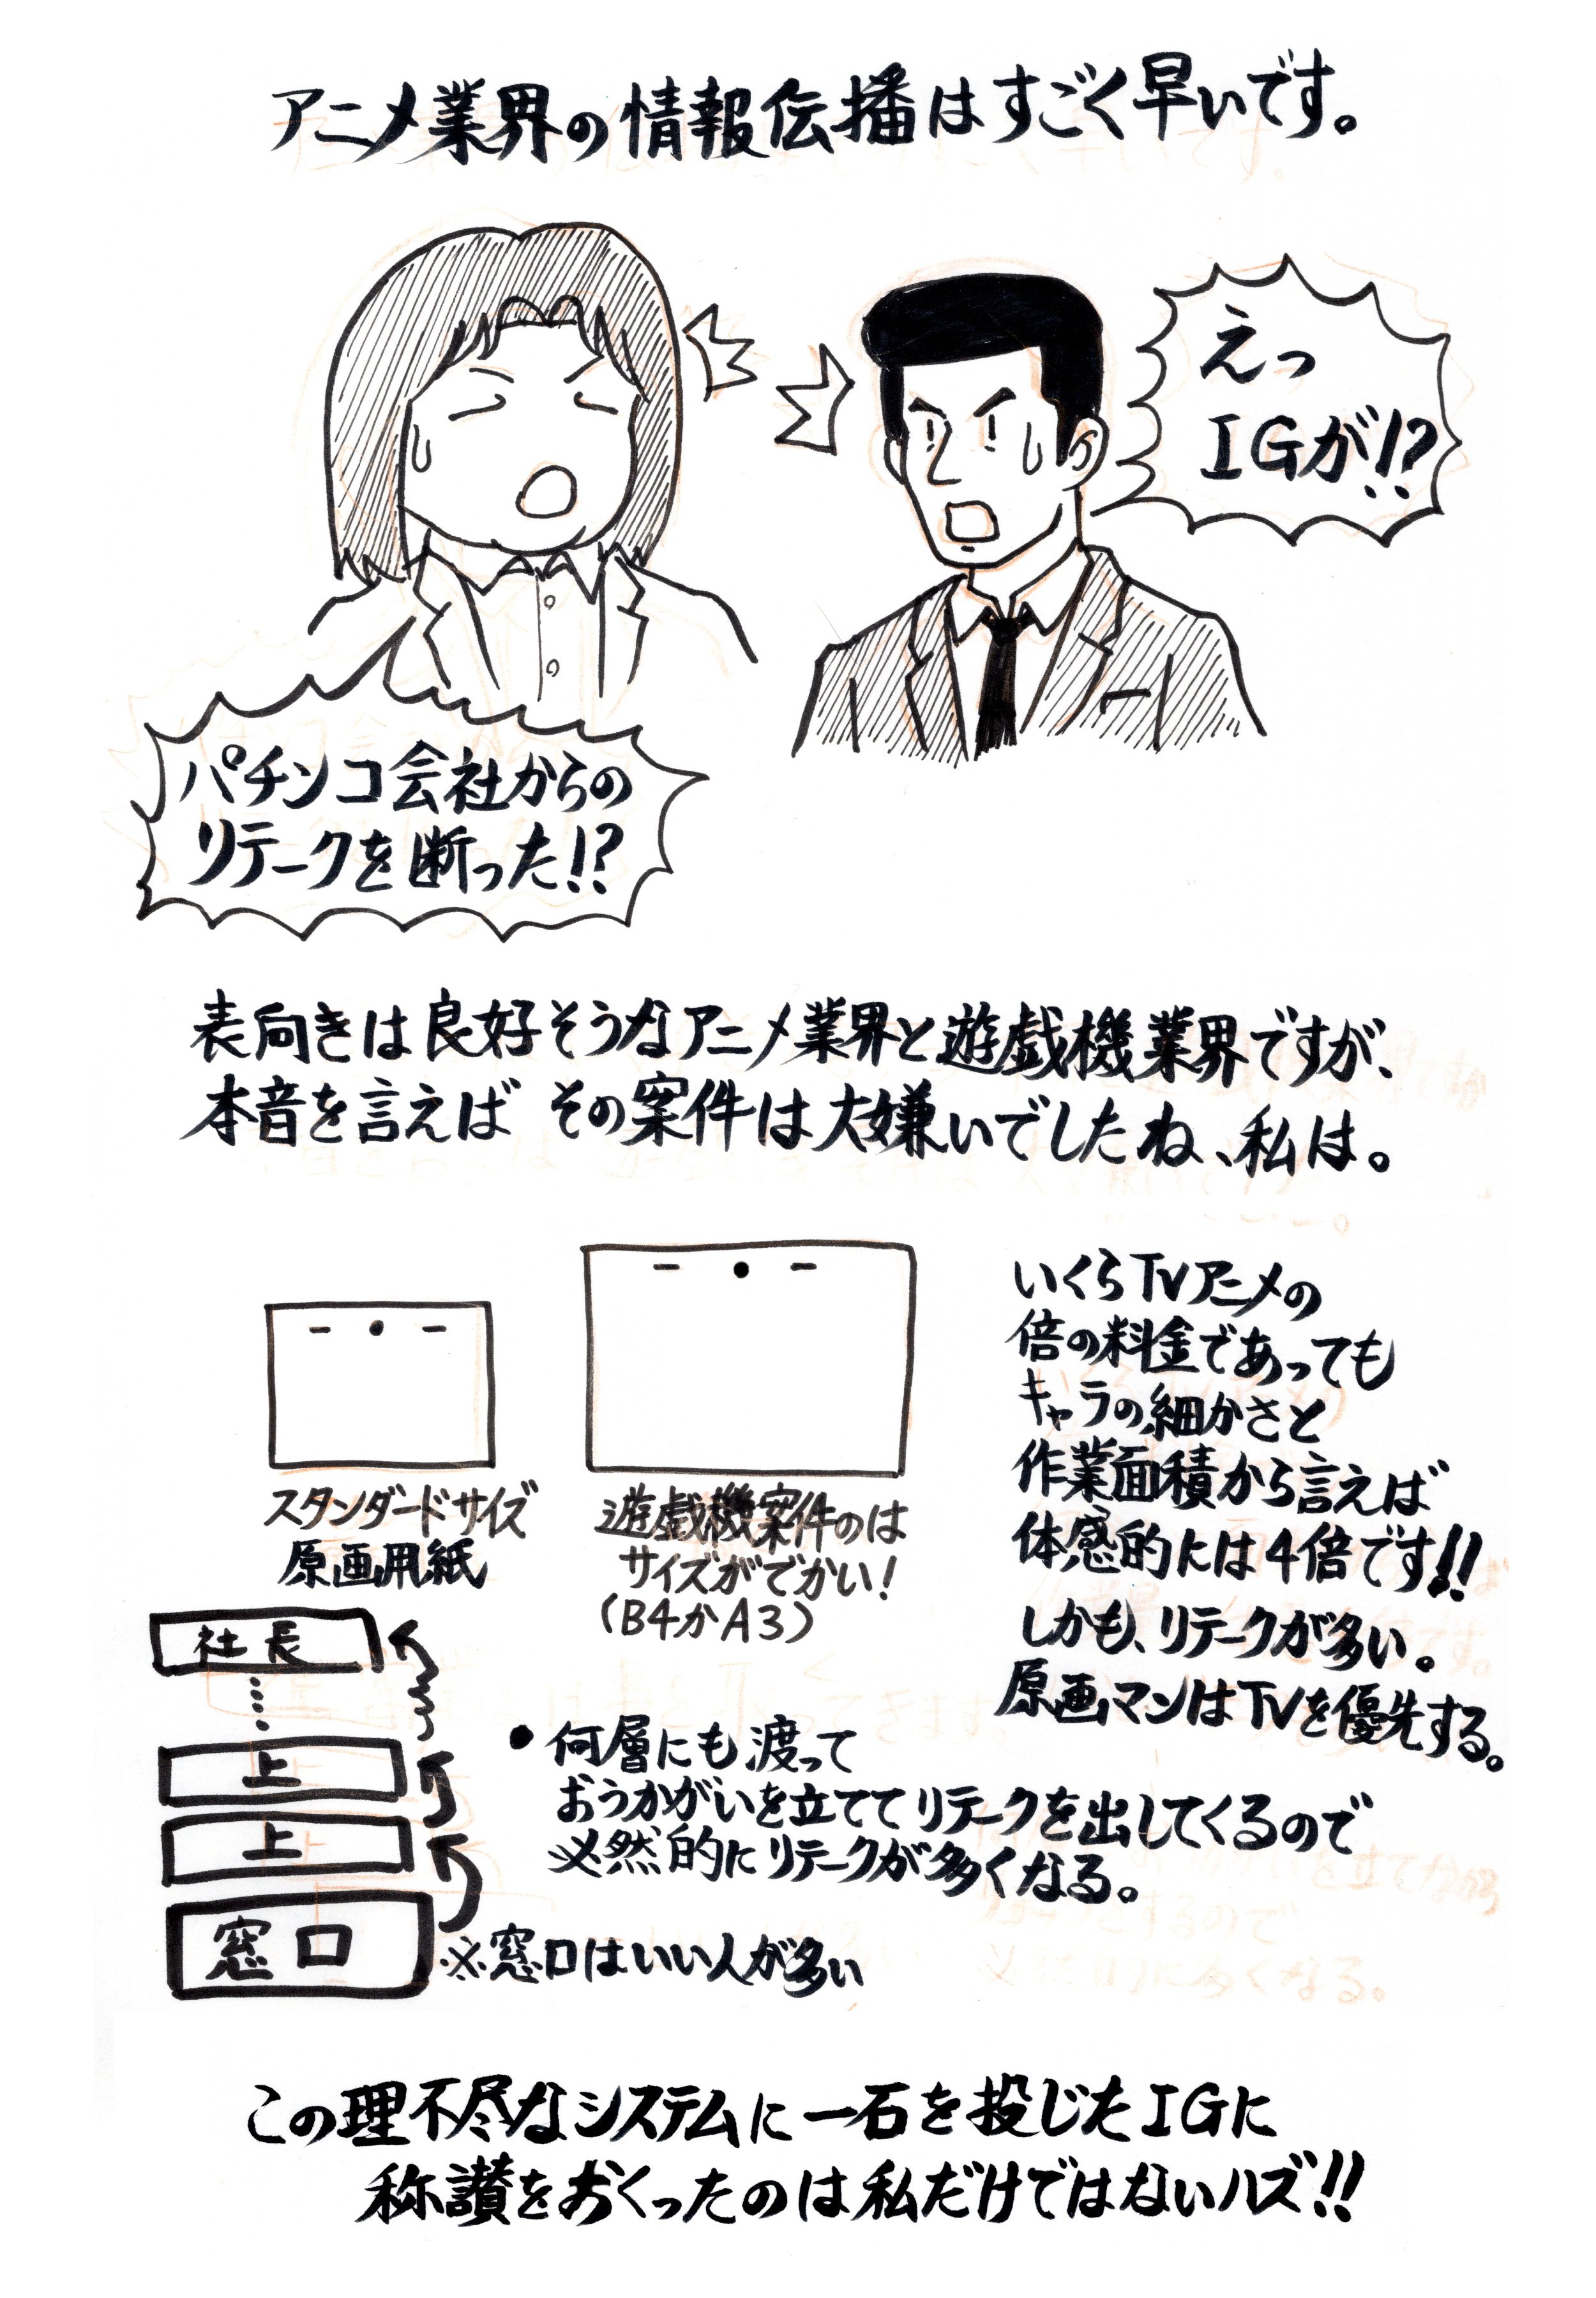 アニメ業界の情報伝播はすごく早いです。
えっ
IGが!?
パチンコ会社からの
リテークを断った!?
表向きは良好そうなアニメ業界と遊戯機業界ですが、
本音を言えば その案件は大嫌いでしたね、私は。
いくらTVアニメの
倍の料金であっても
キャラの細かさと
作業面積から言えば
体感的には4倍です!!
しかも、リテークが多い。
原画マンはTVを優先する。
スタンダードサイズ
原画用紙
遊戯機案件のは
サイズがでかい!
(B4かA3)
社長
上
上
窓口
●何層にも渡って
おうかがいを立ててリテークを出してくるので
必然的にリテークが多くなる。
※窓口はいい人が多い
この理不尽なシステムに一石を投じたIGに
称讃をおくったのは私だけではないハズ!!